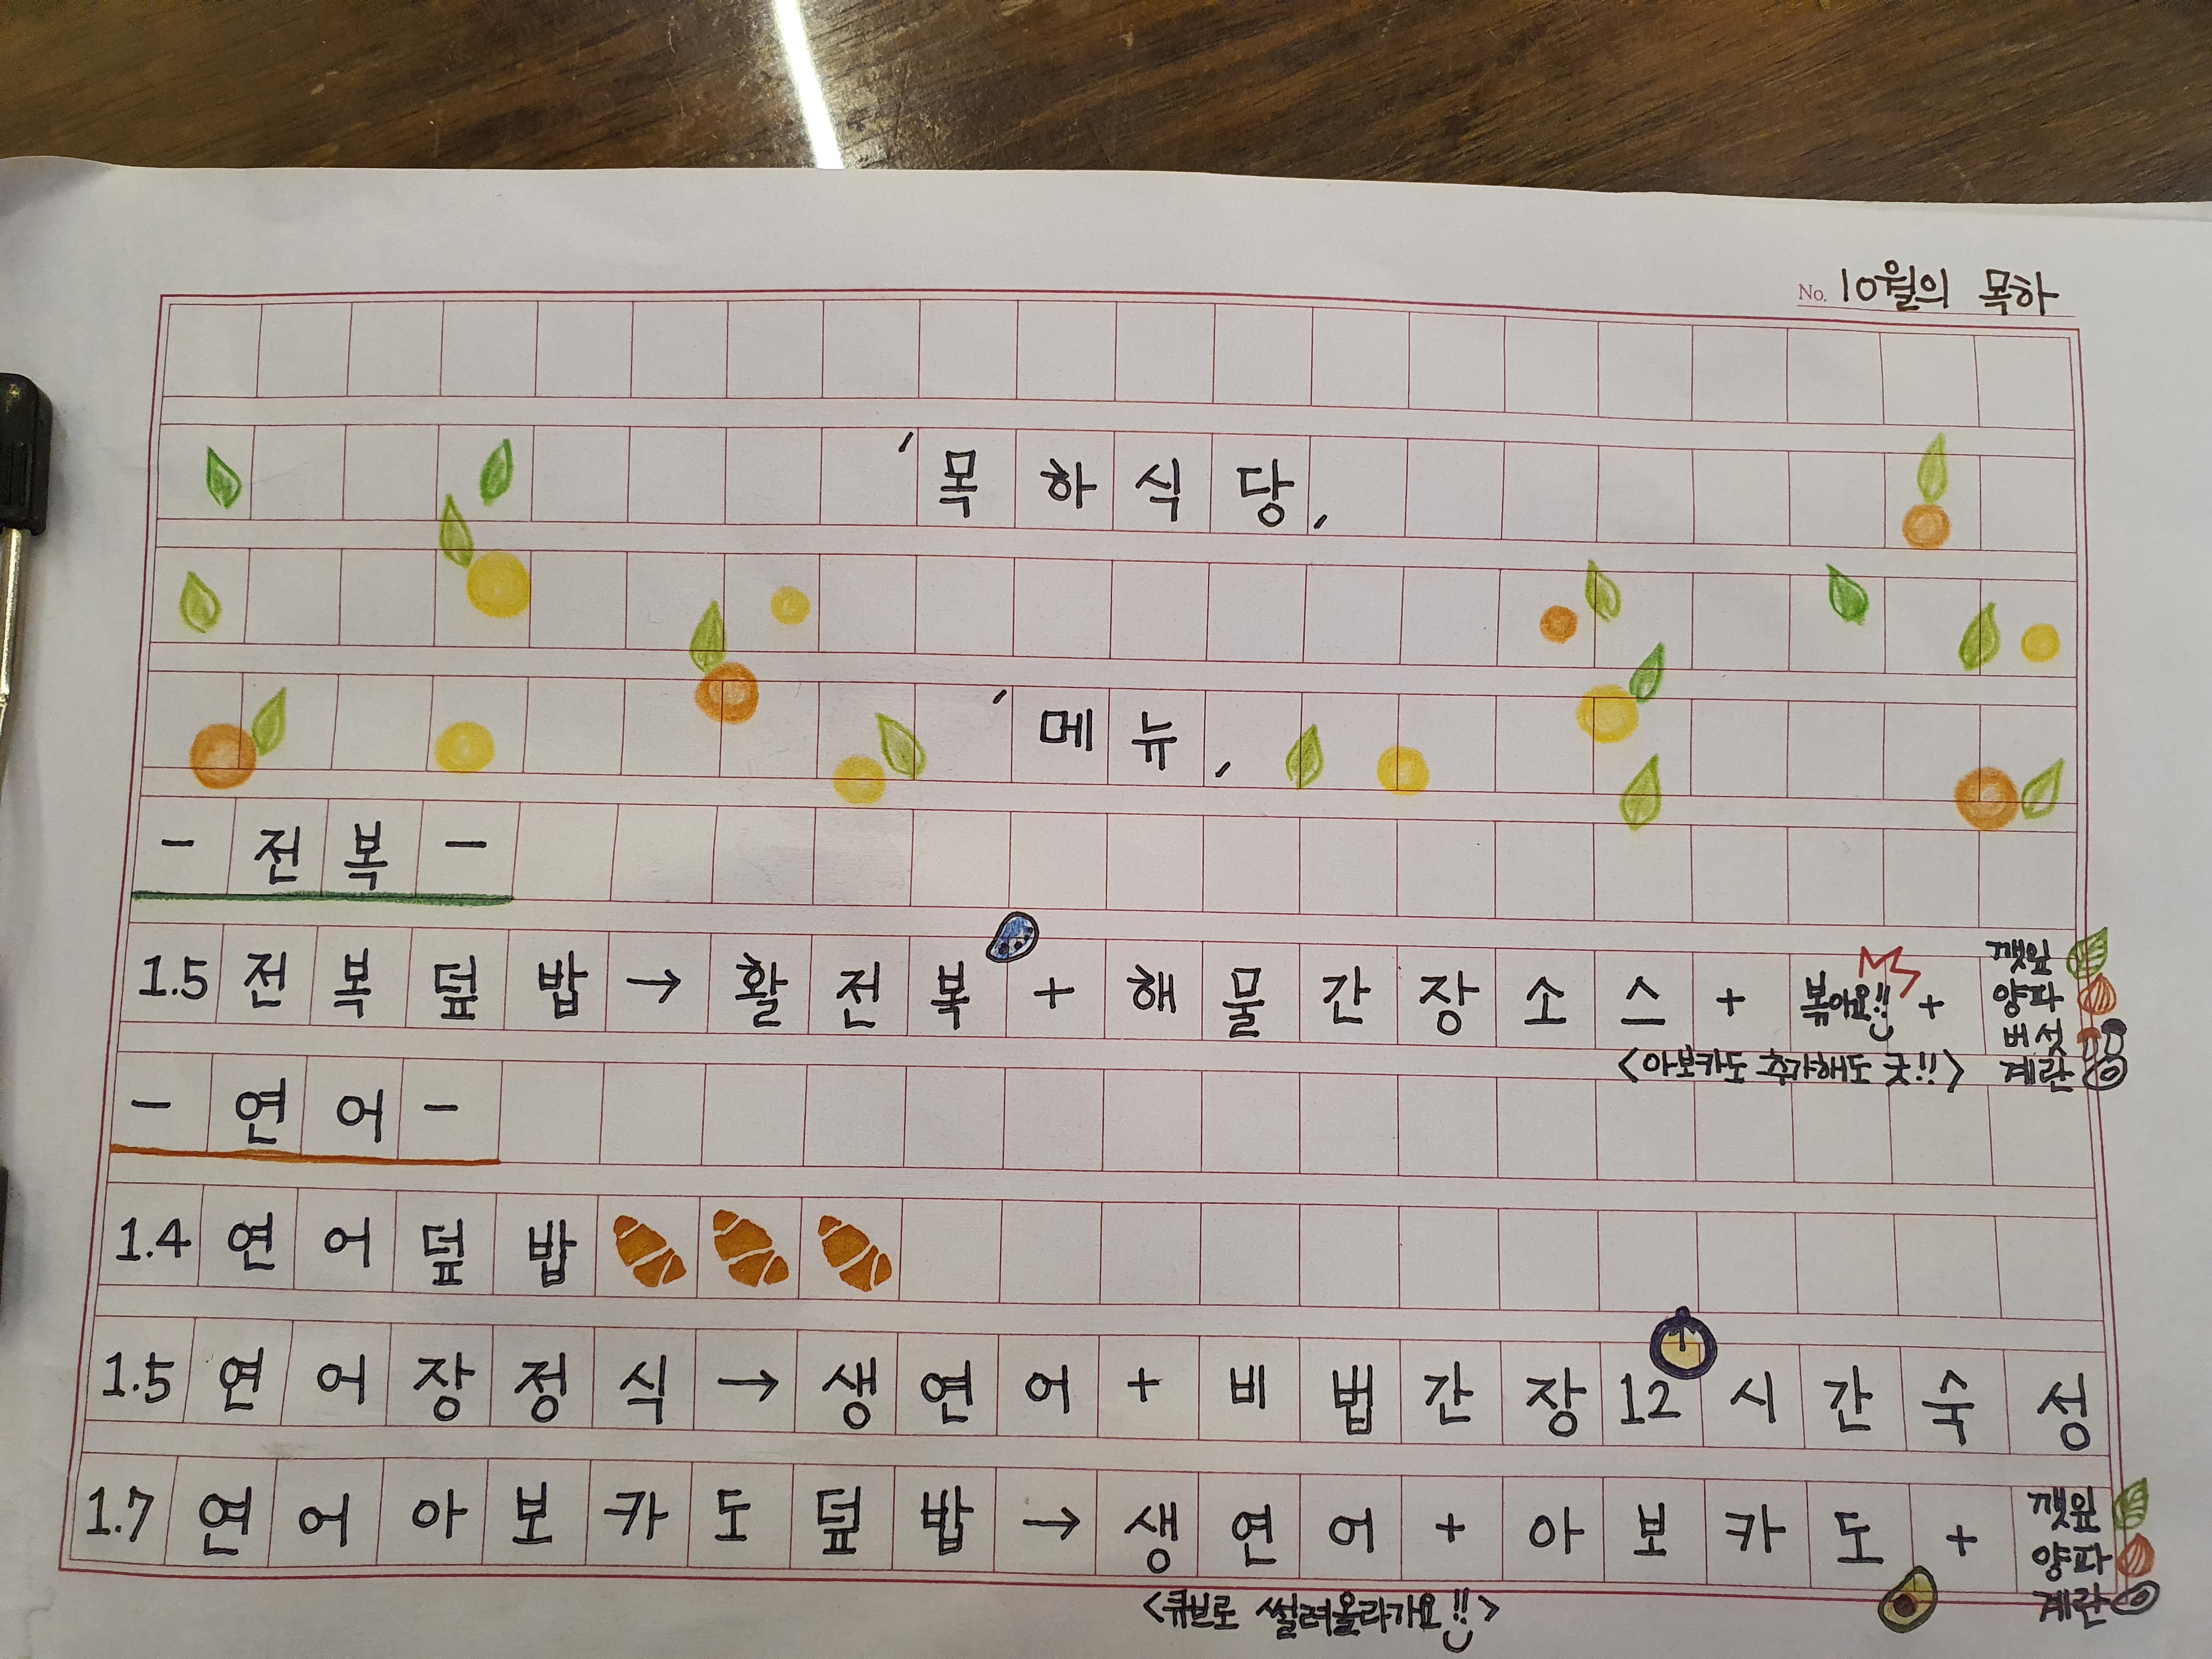 No. 10월의 목하
'목하식당,
'메뉴,
- 전복 -
1.5 전복덮밥 → 활전복 + 해물간장소스 + 볶아요!! + 깻잎 양파 버섯 계란
<아보카도 추가해도 굿!!>
- 연어 -
1.4 연어덮밥
1.5 연어장정식 → 생연어 + 비법간장 12시간숙성
1.7 연어아보카도덮밥 → 생연어 + 아보카도 + 깻잎 양파 계란
<큐브로 썰려올라가요!!>